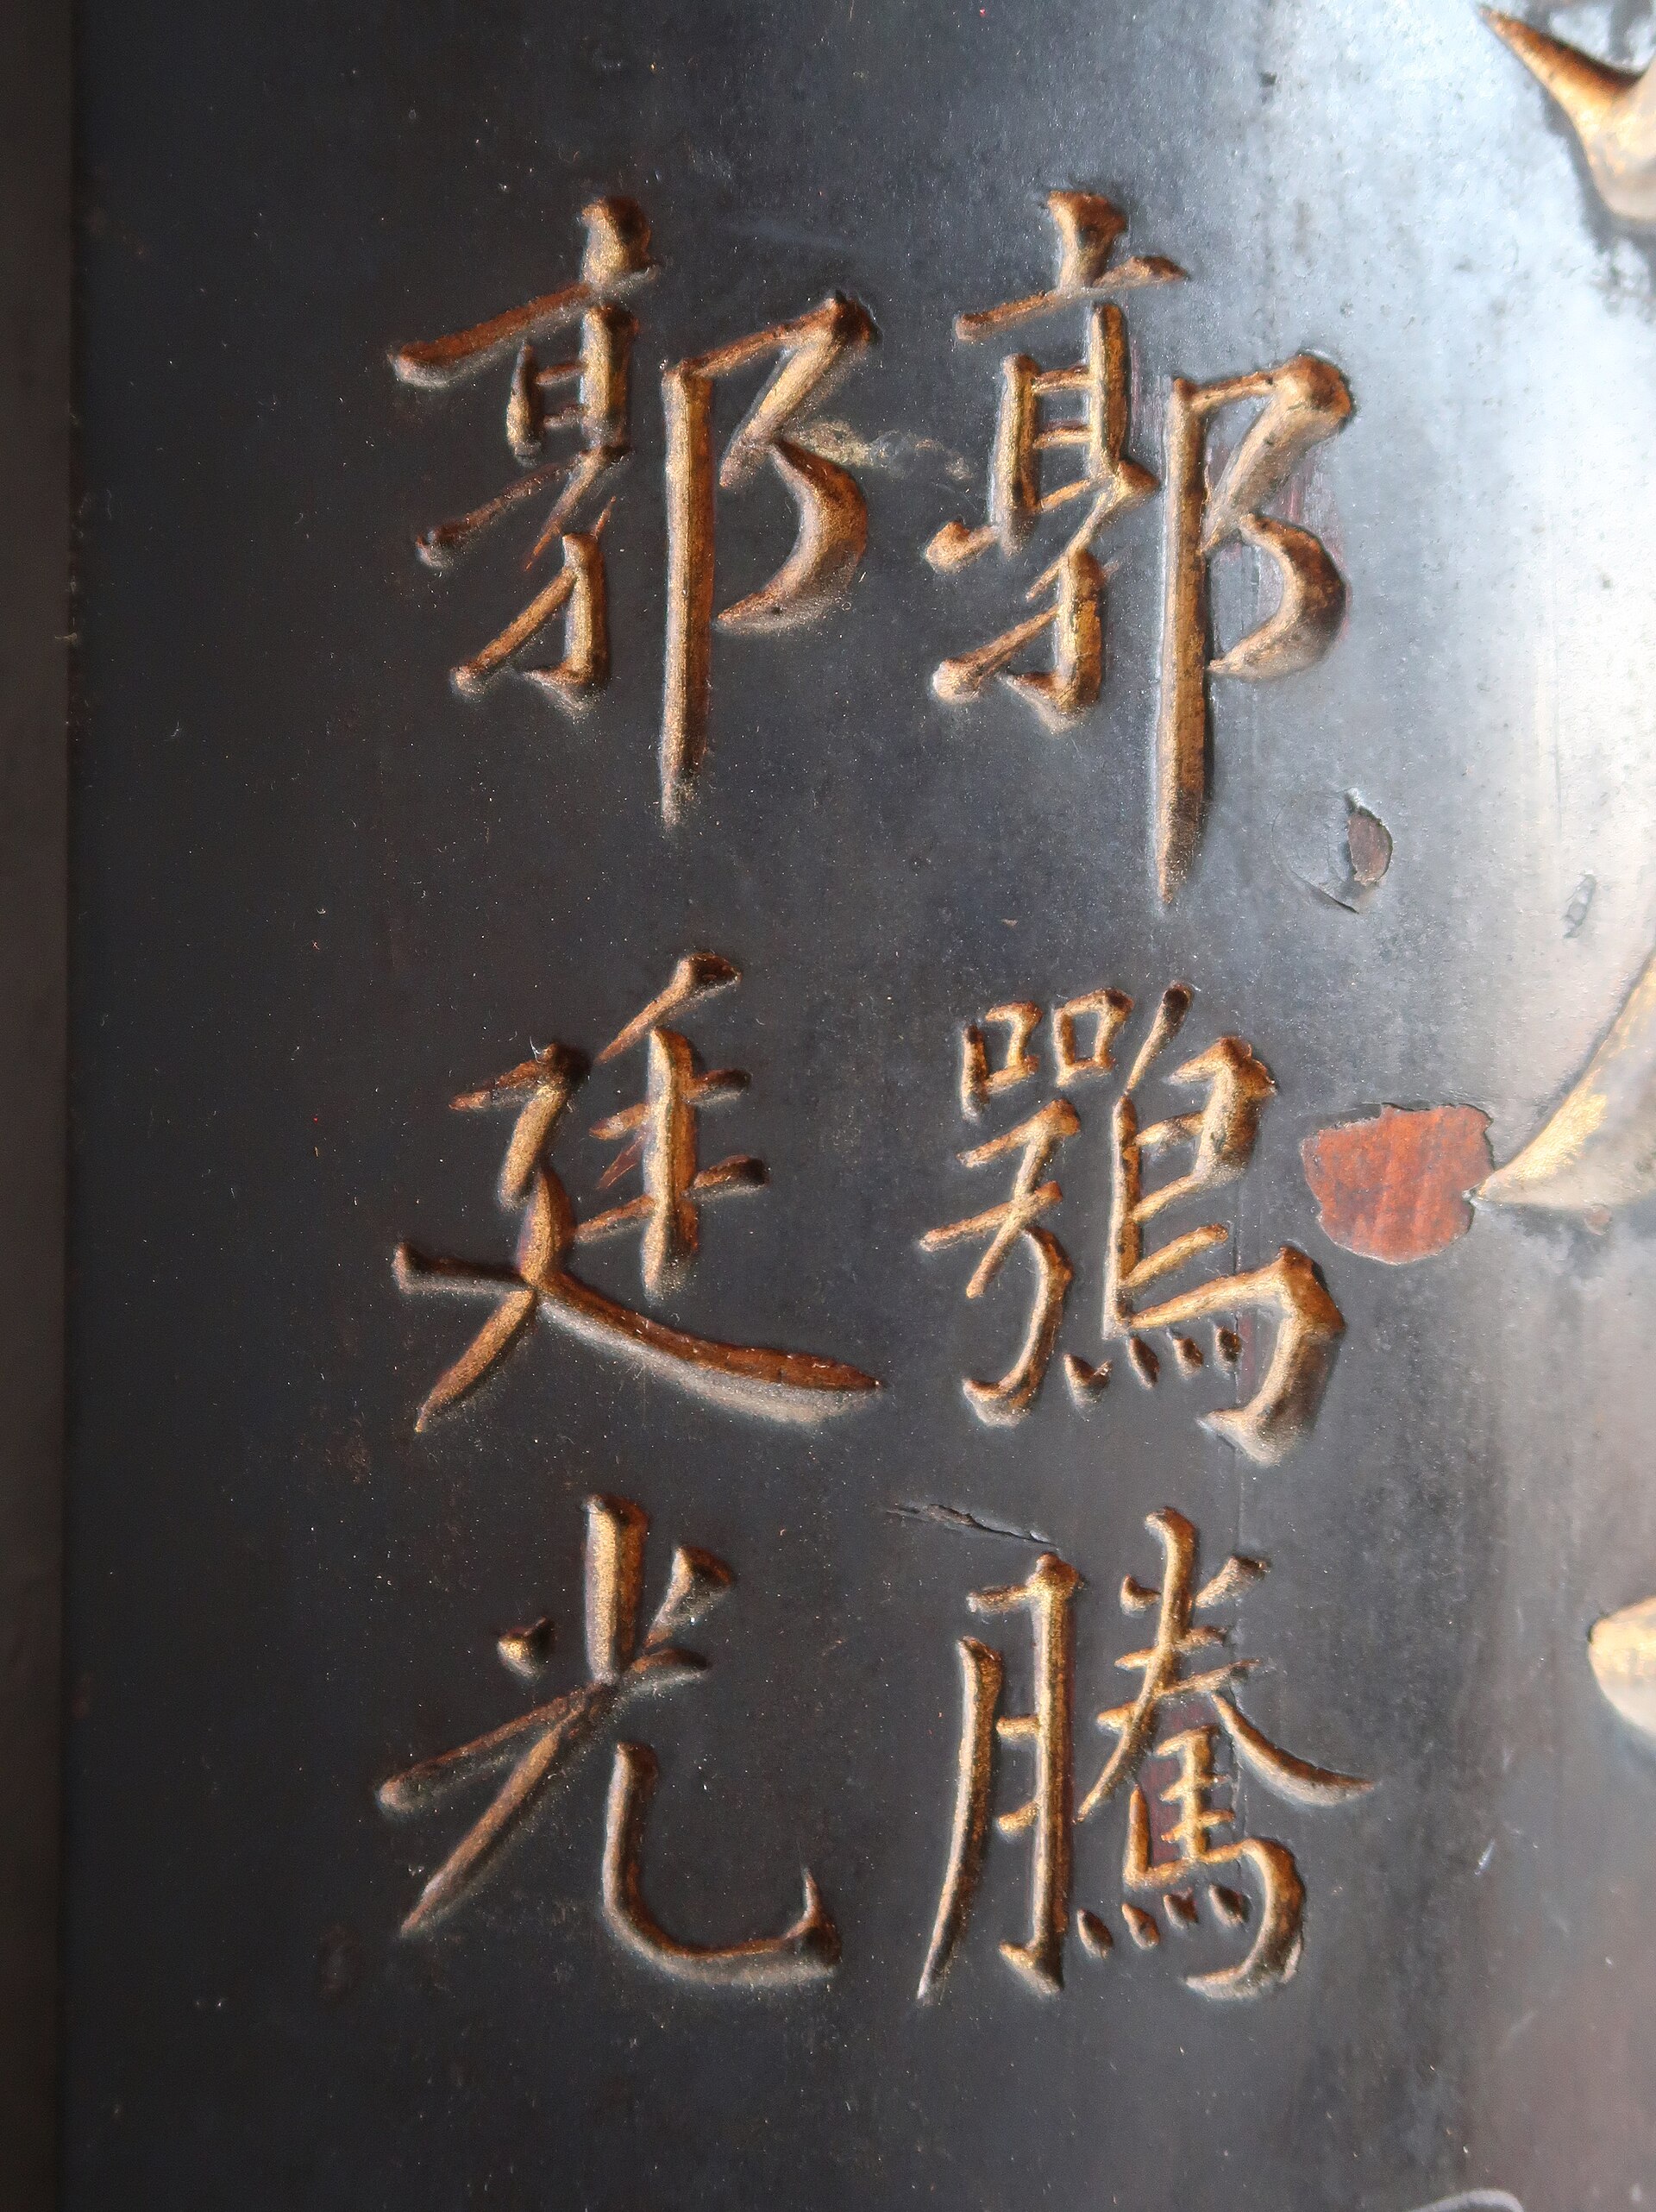 郭鶚騰
郭廷光